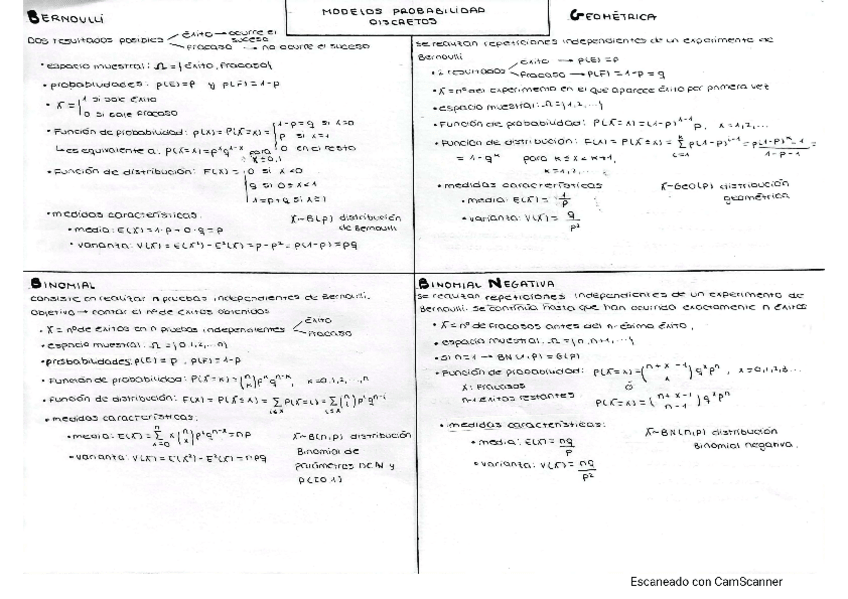 MODELOS PROBABILIDAD
DISCRETOS
BERNOULLI
Dos resultados posibles → éxito → ocurre el suceso
→ fracaso → no ocurre el suceso
• espacio muestral: Ω = {éxito, fracaso}
• probabilidades: p(E)=p y p(F)=1-p
• X = 1 si sale éxito
0 si sale fracaso
• Función de probabilidad: p(x) = P(X=x) = 1-p=q si x=0
p si x=1
0 en el resto
↳ es equivalente a: P(X=x)=p^x q^1-x para x=0,1
• Función de distribución: F(x) = 0 si x<0
q si 0≤x<1
1=p+q si x≥1
• medidas características:
• media: E(X)=1·p+0·q=p
• varianza: V(X)=E(X²)-E²(X)=p-p²=p(1-p)=pq
X~B(p) distribución
de Bernoulli
GEOMÉTRICA
se realizan repeticiones independientes de un experimento de
Bernoulli
• 2 resultados → éxito → p(E)=p
→ fracaso → p(F)=1-p=q
• X = nº del experimento en el que aparece éxito por primera vez
• espacio muestral: Ω={1,2,...}
• Función de probabilidad: P(X=x)=(1-p)^x-1 p, x=1,2,...
• Función de distribución: F(x)=P(X≤x)=
= 1-q^k para k≤x<k+1,
k=1,2,...
• medidas características
• media: E(X)= 1/p
• varianza: V(X)= q/p²
X~GEO(p) distribución
geométrica
BINOMIAL
consiste en realizar n pruebas independientes de Bernoulli.
Objetivo → contar el nº de éxitos obtenidos
• X = nº de éxitos en n pruebas independientes → éxito
→ fracaso
• espacio muestral: Ω={0,1,2,...n}
• probabilidades: p(E)=p, p(F)=1-p
• Función de probabilidad: P(X=x)=(n x) p^x q^n-x, x=0,1,2,..,n
• Función de distribución: F(x)=P(X≤x)=
• medidas características:
• media: E(X)= =np
• varianza: V(X)=E(X²)-E²(X)=npq
X~B(n,p) distribución
Binomial de
parámetros
BINOMIAL NEGATIVA
se realizan repeticiones independientes de un experimento de
Bernoulli. se continúa hasta que han ocurrido exactamente n éxitos
• X = nº de fracasos antes del n-ésimo éxito,
• espacio muestral: Ω={n,n+1,...}
• si n=1 → BN(1,p)=G(p)
• Función de probabilidad: P(X=x)=(n+x-1 x) q^x p^n, x=0,1,2,3...
x: fracasos ó
n-1 éxitos restantes P(X=x)=(n+x-1 n-1) q^x p^n
• medidas características:
• media: E(X)= nq/p
• varianza: V(X)= nq/p²
X~BN(n,p) distribución
Binomial negativa.
Escaneado con CamScanner